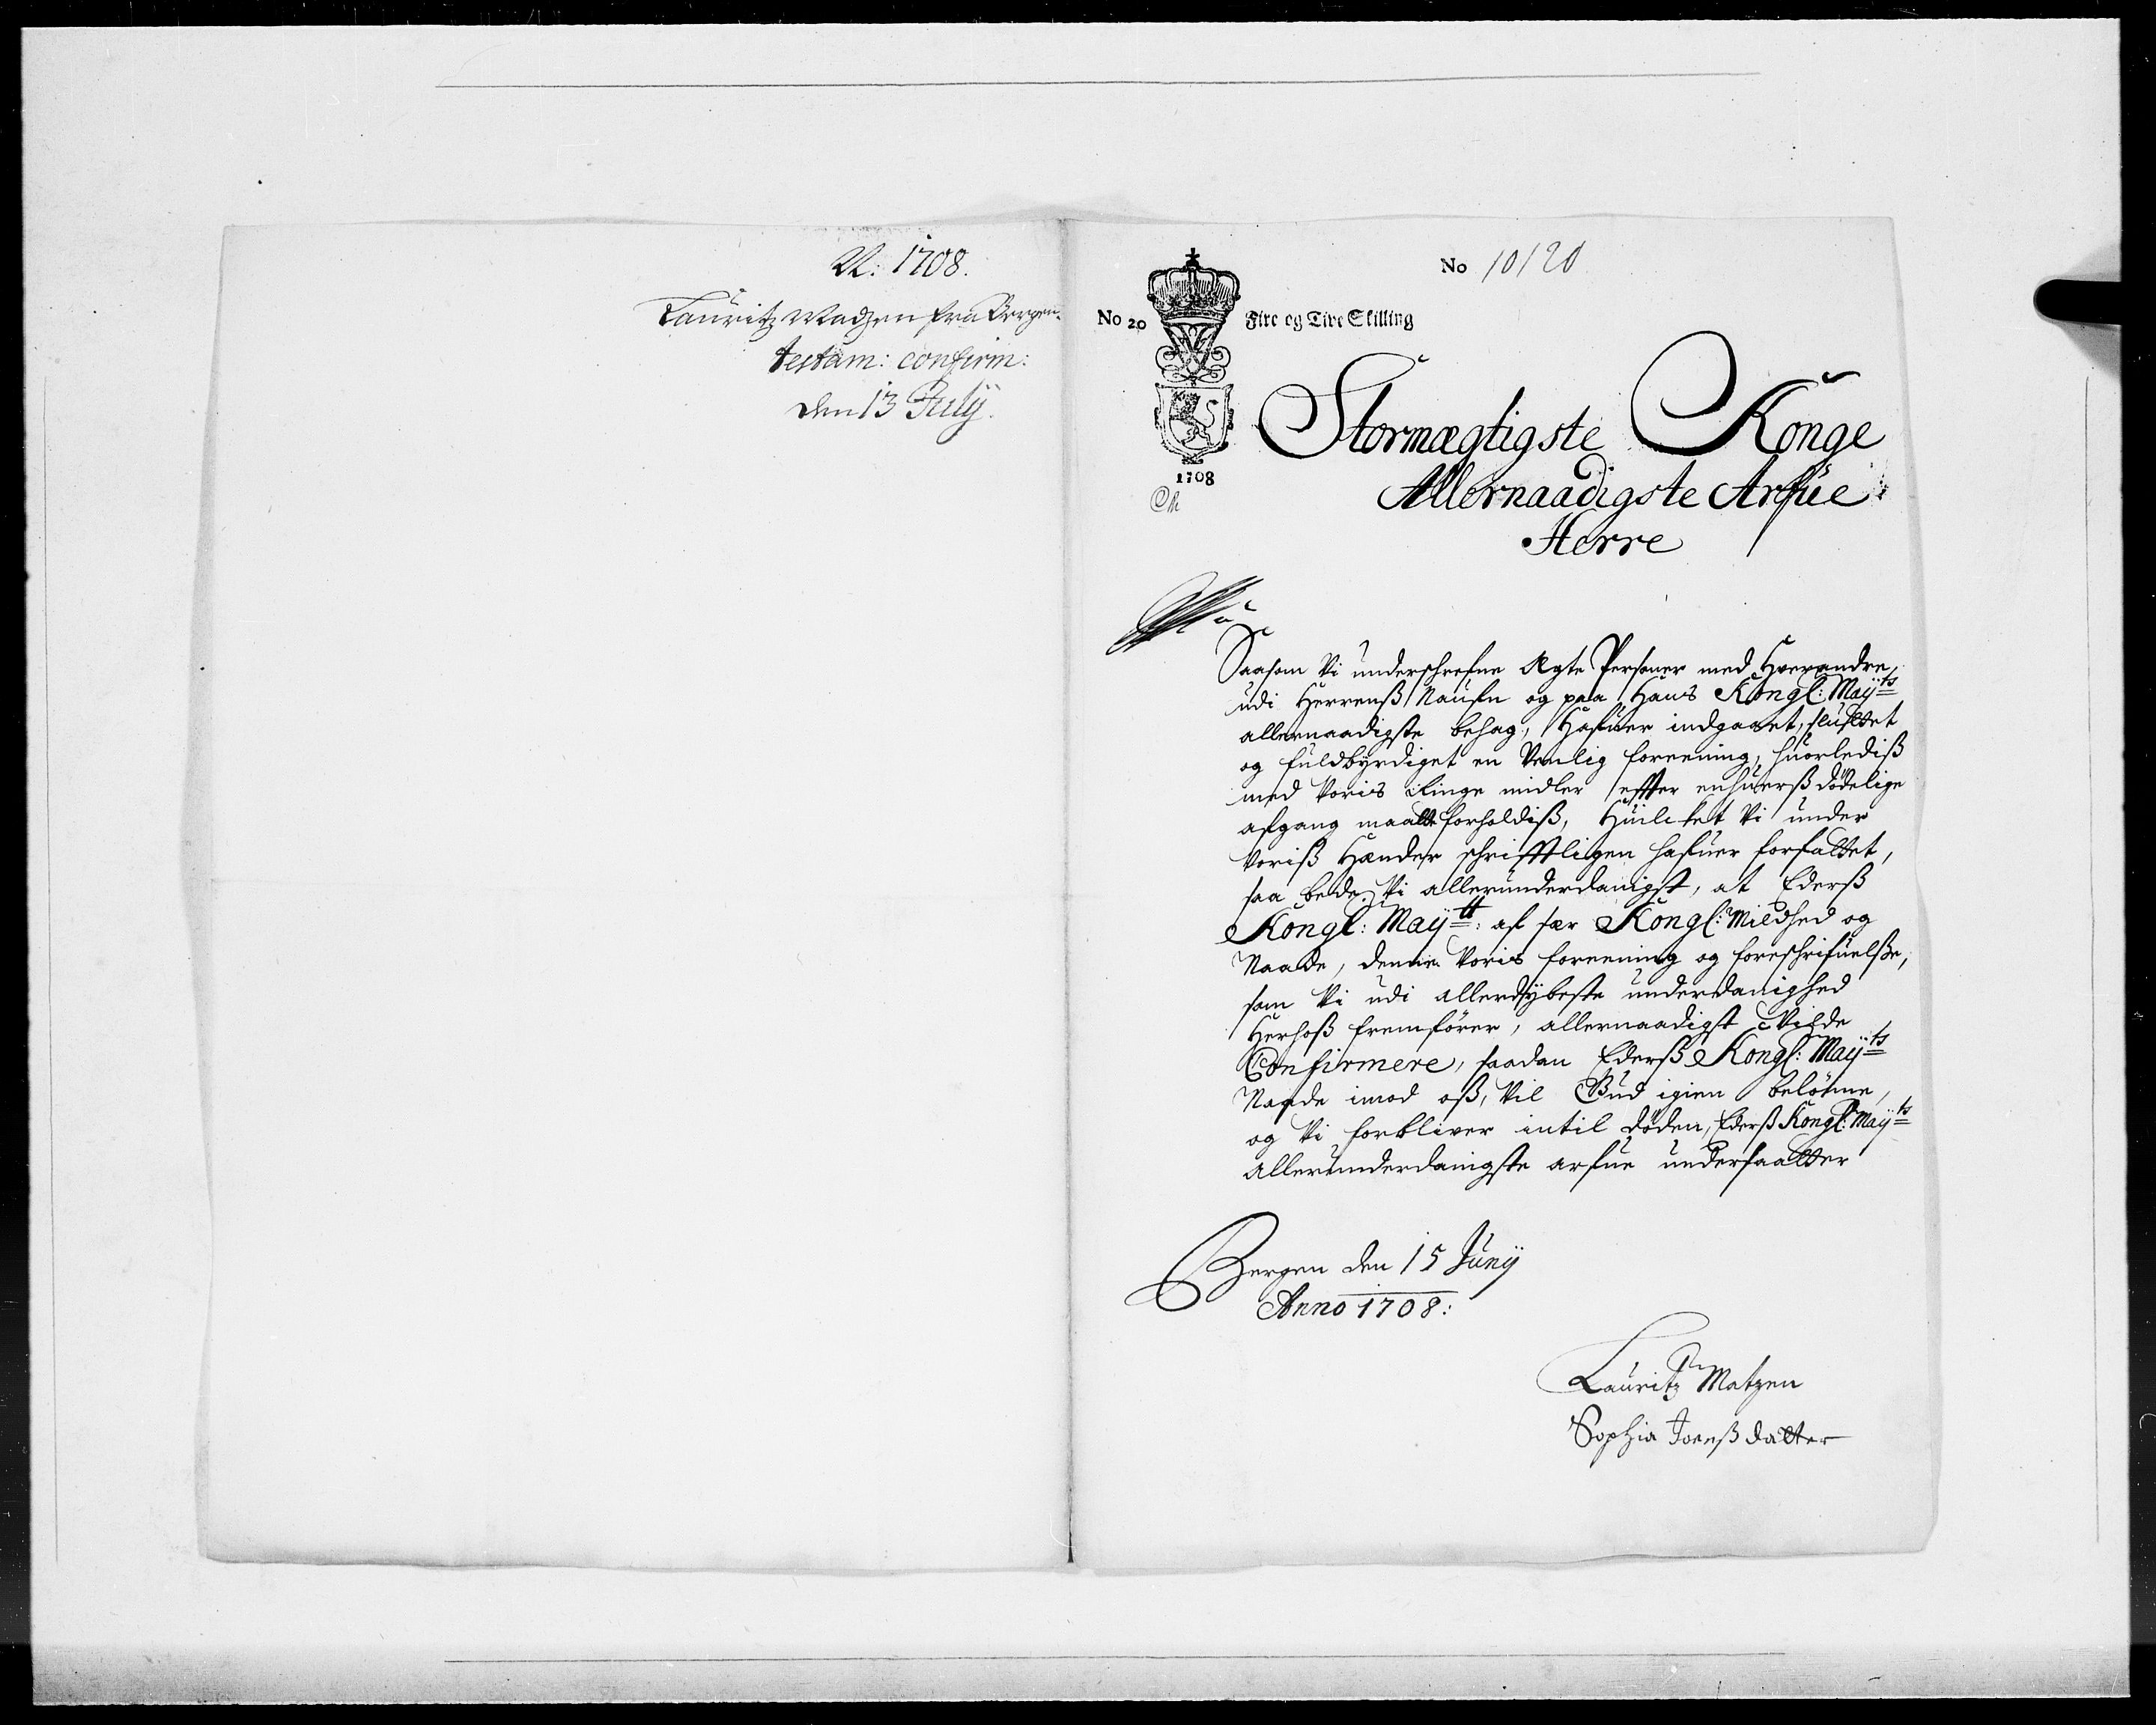 A: 1708.
Lauritz Madzen fra Bergen
testam: confirm:
den 13 July.
No 10120
No 20
Fire og Tive Skilling
1708
Stormægtigste Konge
Allernaadigste Arfue
Herre
Saasom Vi underschrefne Ægte Personer med Hverandre,
udi Herrenß Naufn og paa Hans Kongl: Maÿts
allernaadigste behag, Hafuer indgaaet, sluttet
og fuldbyrdiget en Venlig foreening, huorlediß
med Voris ringe midler effter enhuerß dödelige
afgang maatte forholdiß, Huilcket Vi under
Voriß Hænder schrifftligen hafuer forfattet,
saa bede Vi allerunderdanigst, at Ederß
Kongl: Maÿtt: af sær Kongl: Mildhed og
Naade, denne Voris foreening og foreschrifuelße,
som Vi udi allerdÿbeste underdanighed
Herhoß fremförer, allernaadigst Vilde
Confirmere, saadan Ederß Kongl: Maÿts
Naade imod oß, Vil Gud igien belönne,
og Vi forbliver intil döden, Ederß Kongl: Maÿts
allerunderdanigste arfue undersaatter
Bergen den 15 Junÿ
Anno 1708:
Lauritz Matzen
Sophia Joenß datter